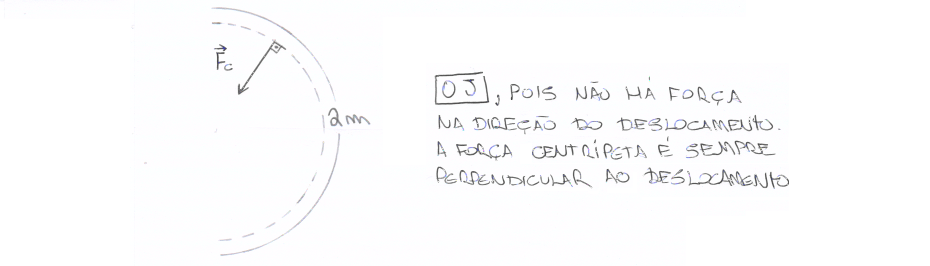 F⃗c
2m
0 J, POIS NÃO HÁ FORÇA
NA DIREÇÃO DO DESLOCAMENTO.
A FORÇA CENTRÍPETA É SEMPRE
PERPENDICULAR AO DESLOCAMENTO